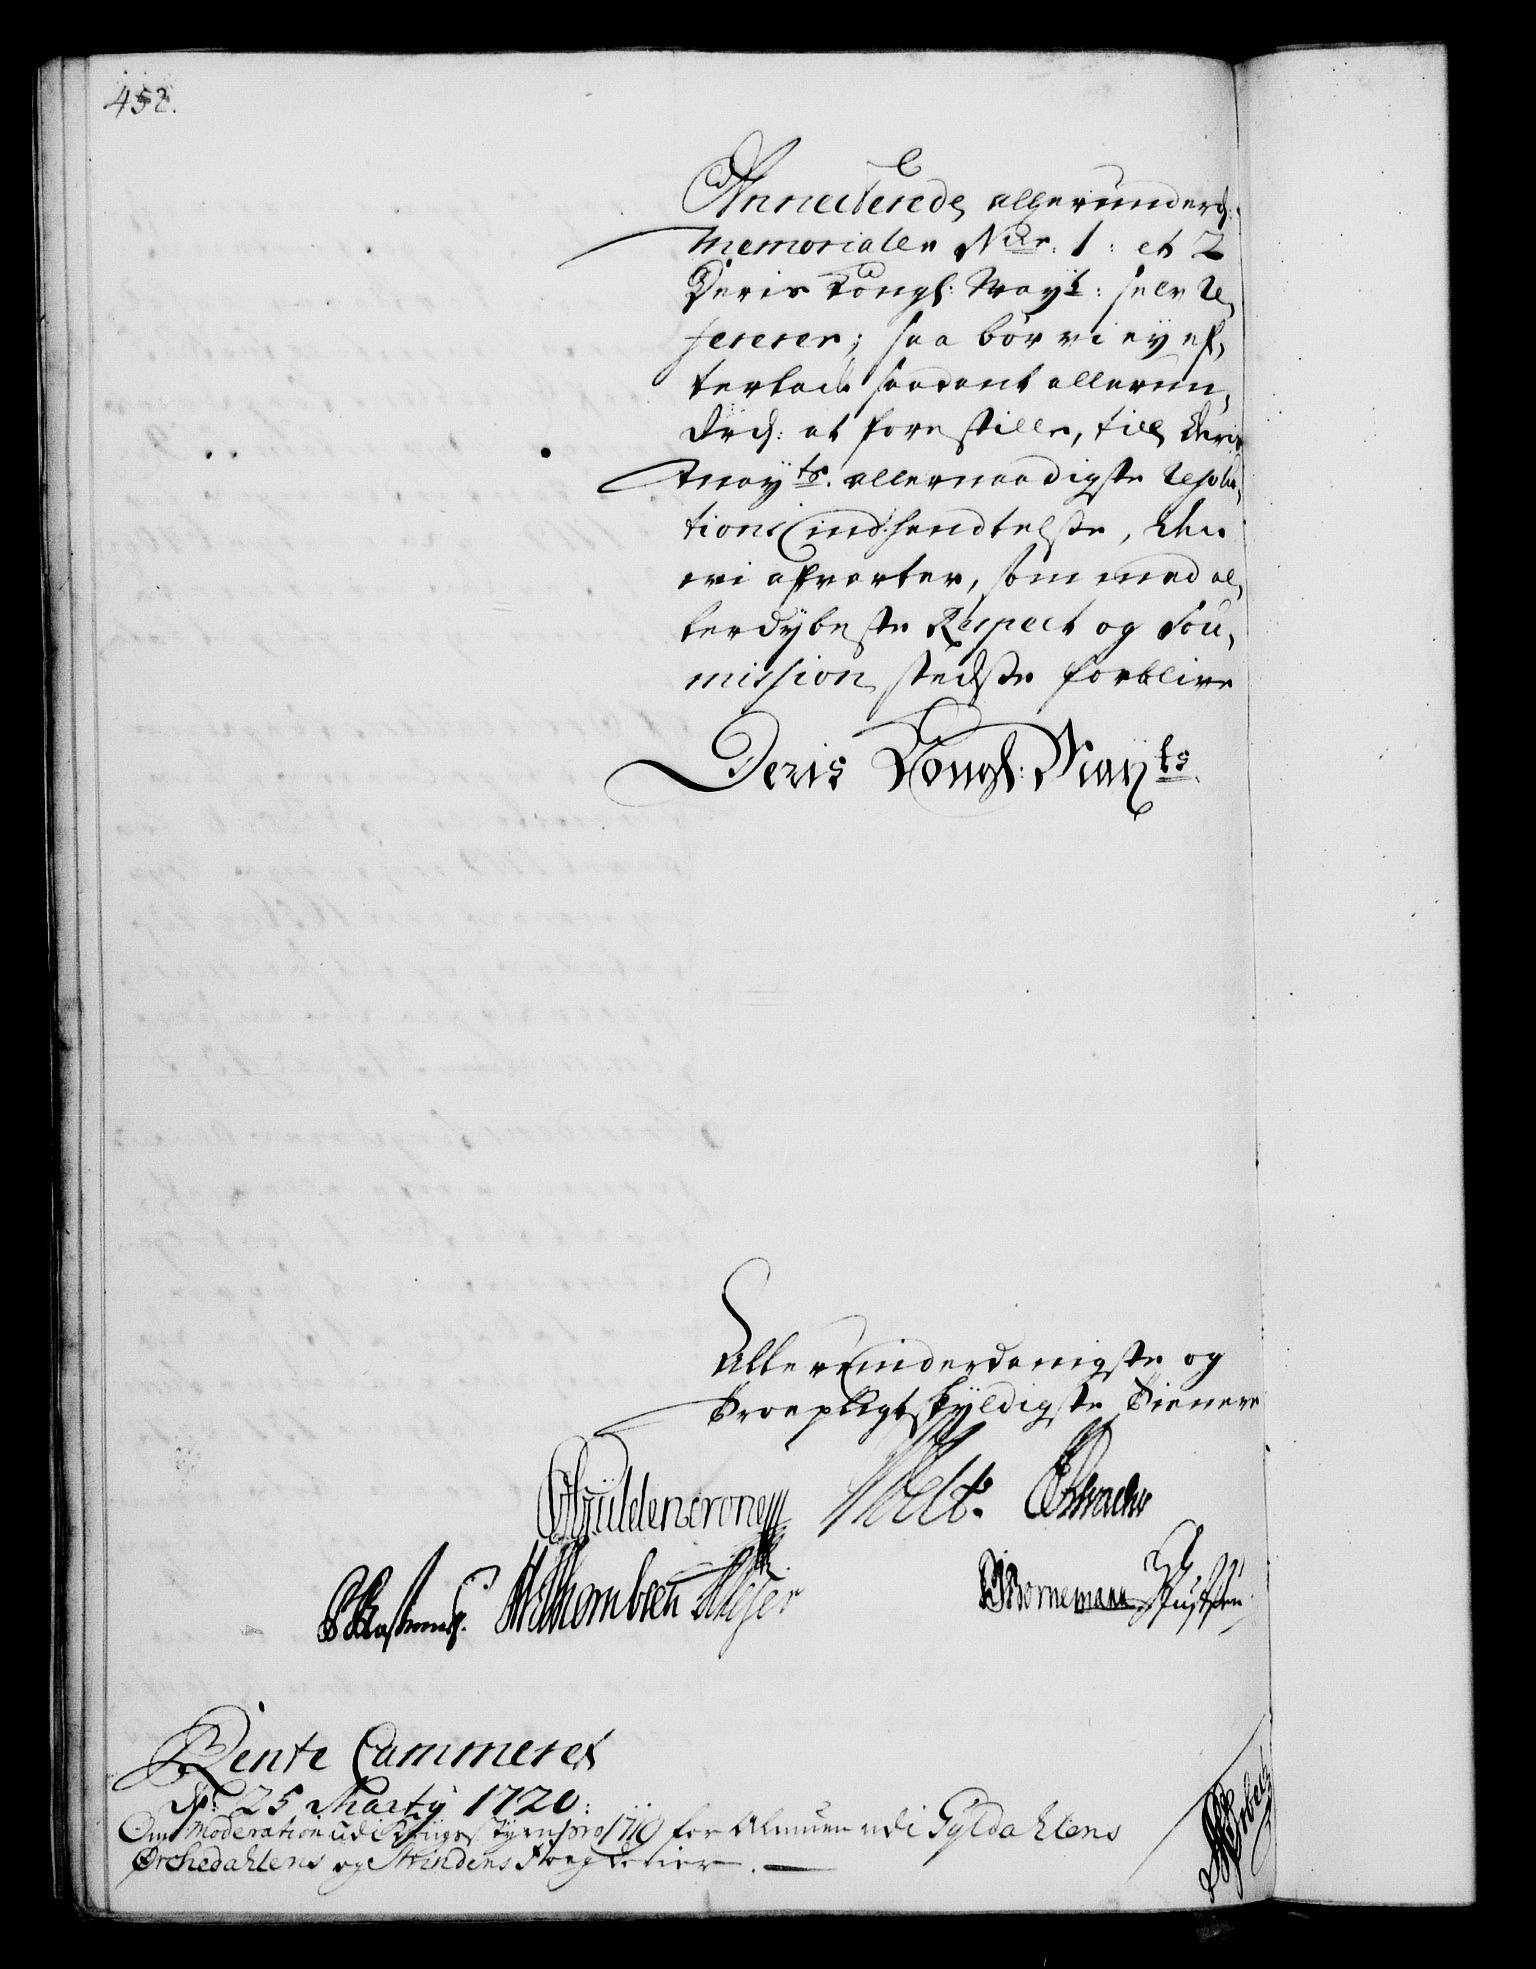 452.
Annecterede allerunderd:
Memorialer N๐ 1: et 2
Deris Kongl: May:t: selv Re-
fererer; saa bør vi ey ef-
terlade saadant allerun-
drd: at forestille, till Deris
May:ts. allernaadigste Resolu-
tions indhendtelste, den
vi afvarter, som med al-
lerdybeste Respect og Sou-
mission stedste forblive
Deris Kongl: May:ts.
Allerunderdanigste og
troepligtskyldigste tienere
Güldencrone
Holst. 
Wilh: von Breü Meÿer
Bornemann
Rente Cammeret
d: 25 Marty 1720:
Om Moderation udi Krigs Styren pro 1719 for Almuen udi Gyldahlens
Orchedahlens og Strindens Fogderier.